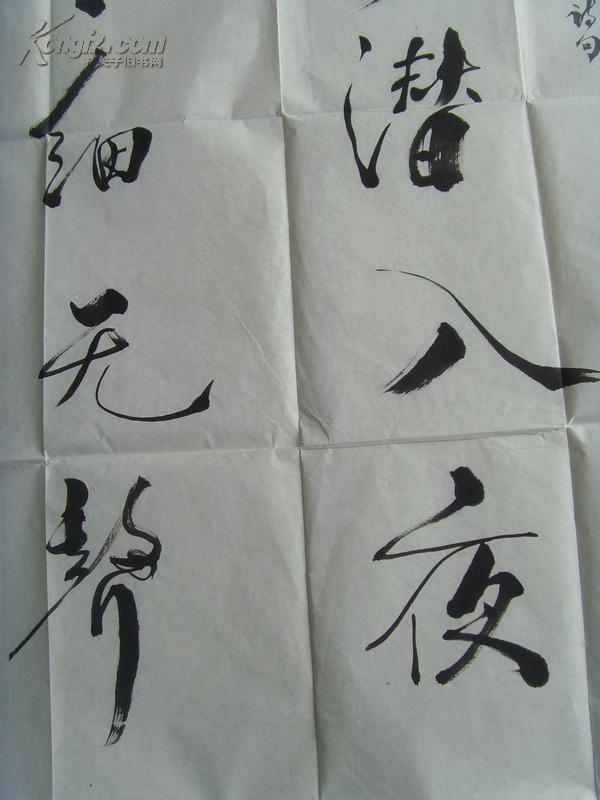 诗句
潜入夜
细无声
Kongfz.com
孔夫子旧书网